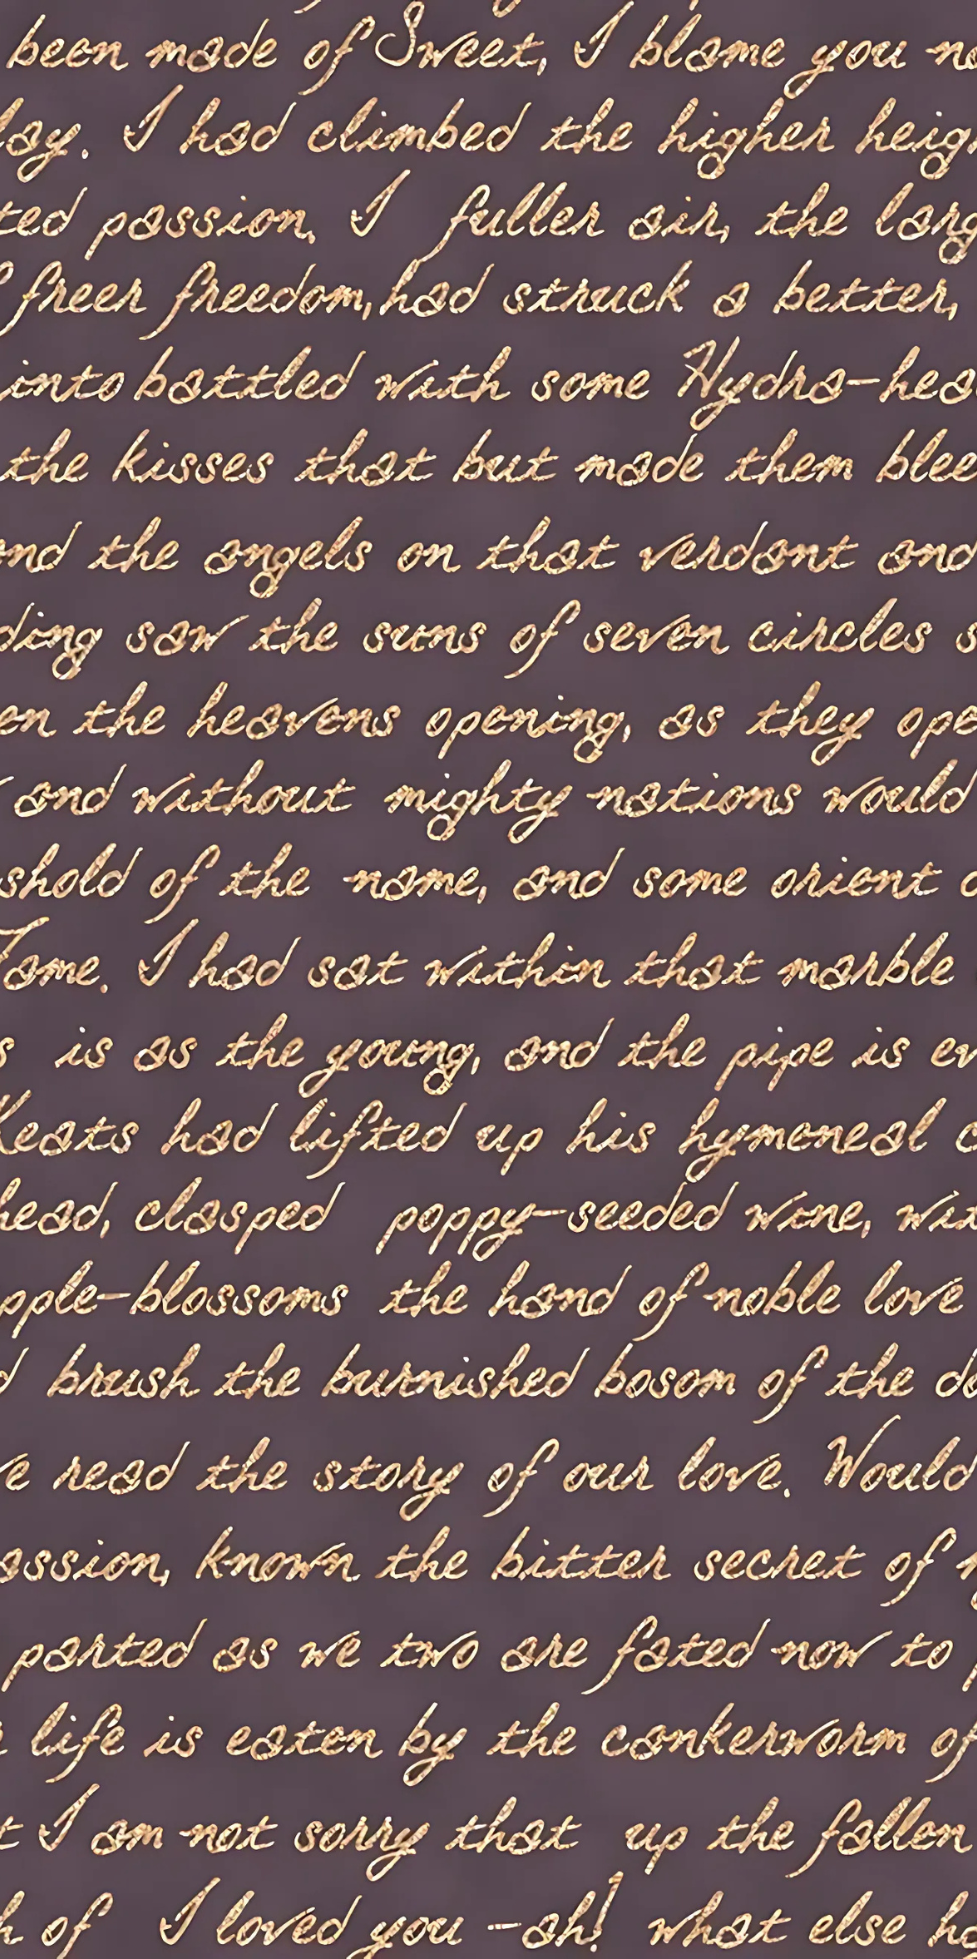 been made of Sweet, I blame you no
lay. I had climbed the higher heig
ted passion, I fuller air, the larg
f freer freedom, had struck a better,
into battled with some Hydra-hea
the kisses that but made them blee
and the angels on that verdant and
ding saw the suns of seven circles s
en the heavens opening, as they ope
and without mighty nations would
shold of the name, and some orient
Fame. I had sat within that marble
s is as the young, and the pipe is ev
Keats had lifted up his hymeneal c
head, clasped poppy-seeded wine, wit
pple-blossoms the hand of noble love
d brush the burnished bosom of the do
ve read the story of our love. Would
assion, known the bitter secret of
parted as we two are fated now to
life is eaten by the cankerworm of
t I am not sorry that up the fallen
h of I loved you -ah! what else ha